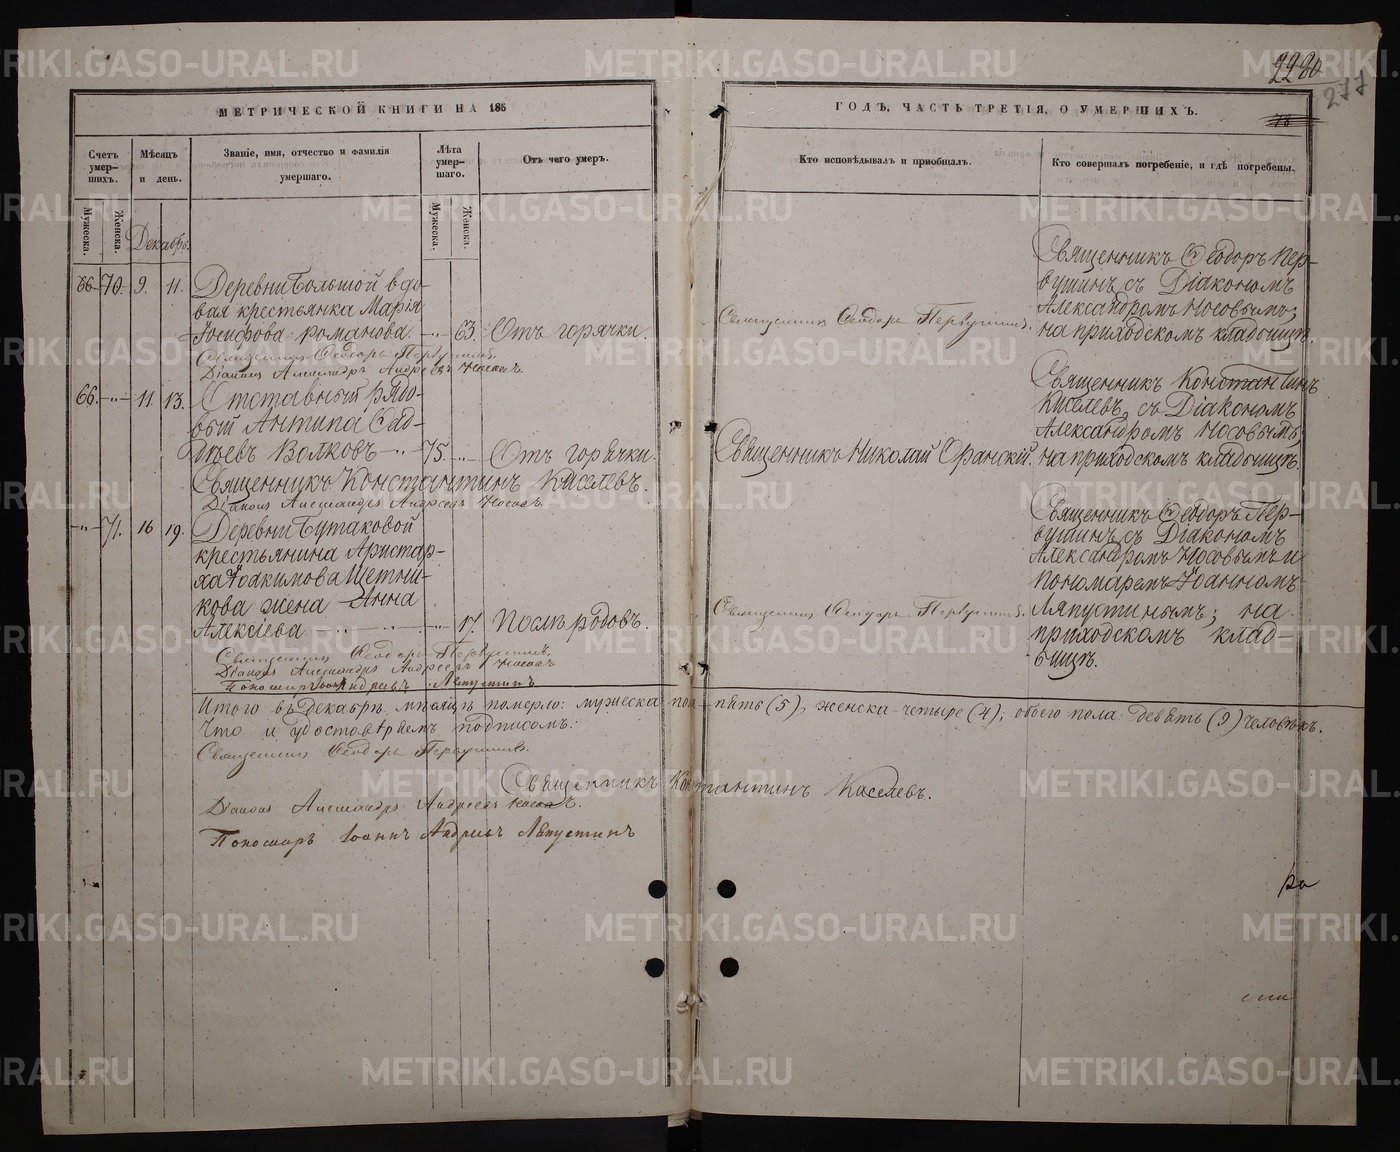 2280
277
78
МЕТРИЧЕСКОЙ КНИГИ НА 185
ГОДЪ, ЧАСТЬ ТРЕТІЯ, О УМЕРШИХЪ.
Счетъ умер-шихъ.
Мужеска.
Женска.
Мѣсяцъ и день.
Званіе, имя, отчество и фамилія умершаго.
Лѣта умер-шаго.
Мужеска.
Женска.
Отъ чего умеръ.
Кто исповѣдывалъ и приобщалъ.
Кто совершалъ погребеніе, и гдѣ погребены.
Декабрь.
66 70. 9. 11. Деревни Большой вдо-
вая крестьянка Марія
Іосифова Романова 63. Отъ горячки.
Священникъ Ѳеодоръ Первушинъ.
Діаконъ Александръ Андреевъ Носовъ.
Священникъ Ѳеодоръ Первушинъ.
Священникъ Ѳеодоръ Пер-
вушинъ, съ Діакономъ
Александромъ Носовымъ,
на приходскомъ кладбищѣ.
66. 11. 13. Отставный рядо-
вый Антипа Сад-
Волковъ 75. Отъ горячки.
Священникъ Константинъ Киселевъ.
Діаконъ Александръ Андреевъ Носовъ.
Священникъ Николай Оранскій.
Священникъ Константинъ
Киселевъ, съ Діакономъ
Александромъ Носовымъ,
на приходскомъ кладбищѣ.
71. 16 19. Деревни Бутаковой
крестьянина Аристар-
ха Іоакимова Щетни-
кова жена Анна
Алексіева 17. Послѣ родовъ.
Священникъ Ѳеодоръ Первушинъ.
Діаконъ Александръ Андреевъ Носовъ
Пономарь Іоаннъ Андреевъ Ляпустинъ
Священникъ Ѳеодоръ Первушинъ.
Священникъ Ѳеодоръ Пер-
вушинъ, съ Діакономъ
Александромъ Носовымъ и
Пономаремъ Іоанномъ
Ляпустинымъ; на
приходскомъ клад-
бищѣ.
Итого въ Декабрѣ мѣсяцѣ померло: мужеска пол- пять (5), женска-четыре (4); обоего пола девять (9) человѣкъ.
Что и удостовѣряемъ подписомъ:
Священникъ Ѳеодоръ Первушинъ.
Священникъ Константинъ Киселевъ.
Діаконъ Александръ Андреевъ Носовъ.
Пономарь Іоаннъ Андреевъ Ляпустинъ
METRIKI.GASO-URAL.RU